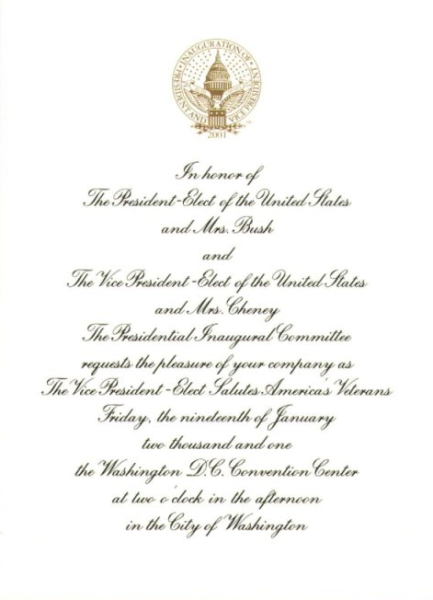 INAUGURATION OF PRESIDENT AND VICE PRESIDENT
2001
In honor of
The President-Elect of the United States
and Mrs. Bush
and
The Vice President-Elect of the United States
and Mrs. Cheney
The Presidential Inaugural Committee
requests the pleasure of your company as
The Vice President-Elect Salutes America's Veterans
Friday, the nineteenth of January
two thousand and one
the Washington D.C. Convention Center
at two o'clock in the afternoon
in the City of Washington